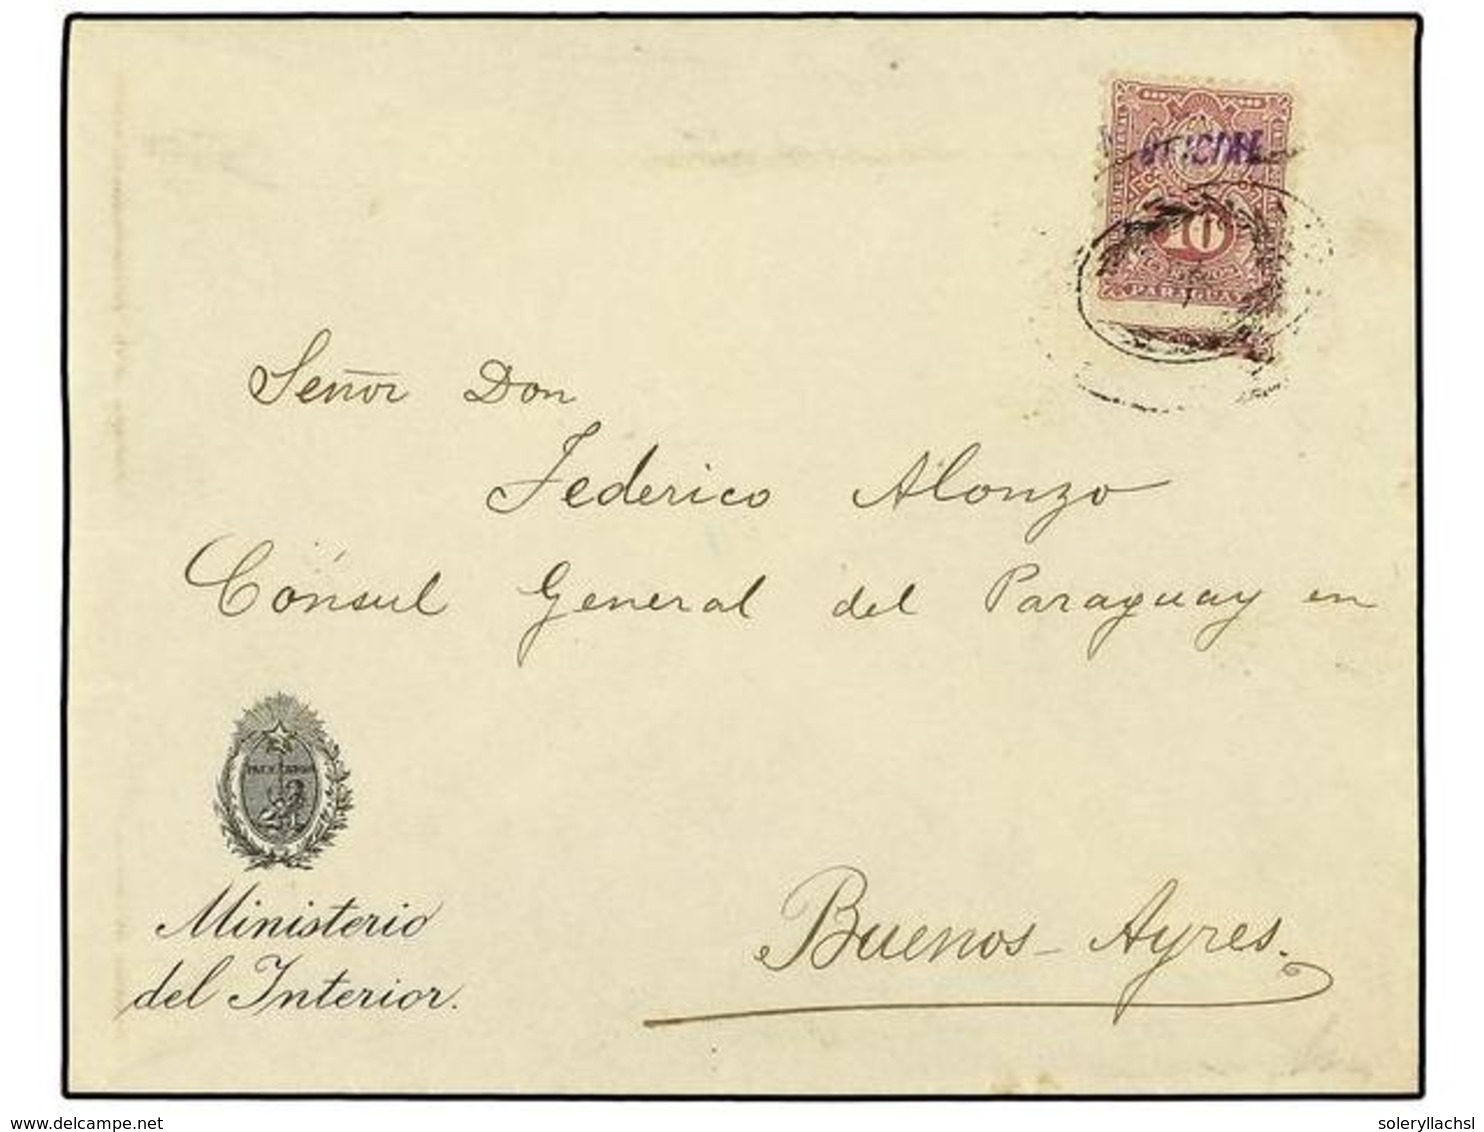 OFICIAL
10
PARAGUAY
Señor Don
Federico Alonzo
Cónsul General del Paraguay en
Buenos-Ayres.
Ministerio
del Interior.
delcampe.net
soleryllachsl